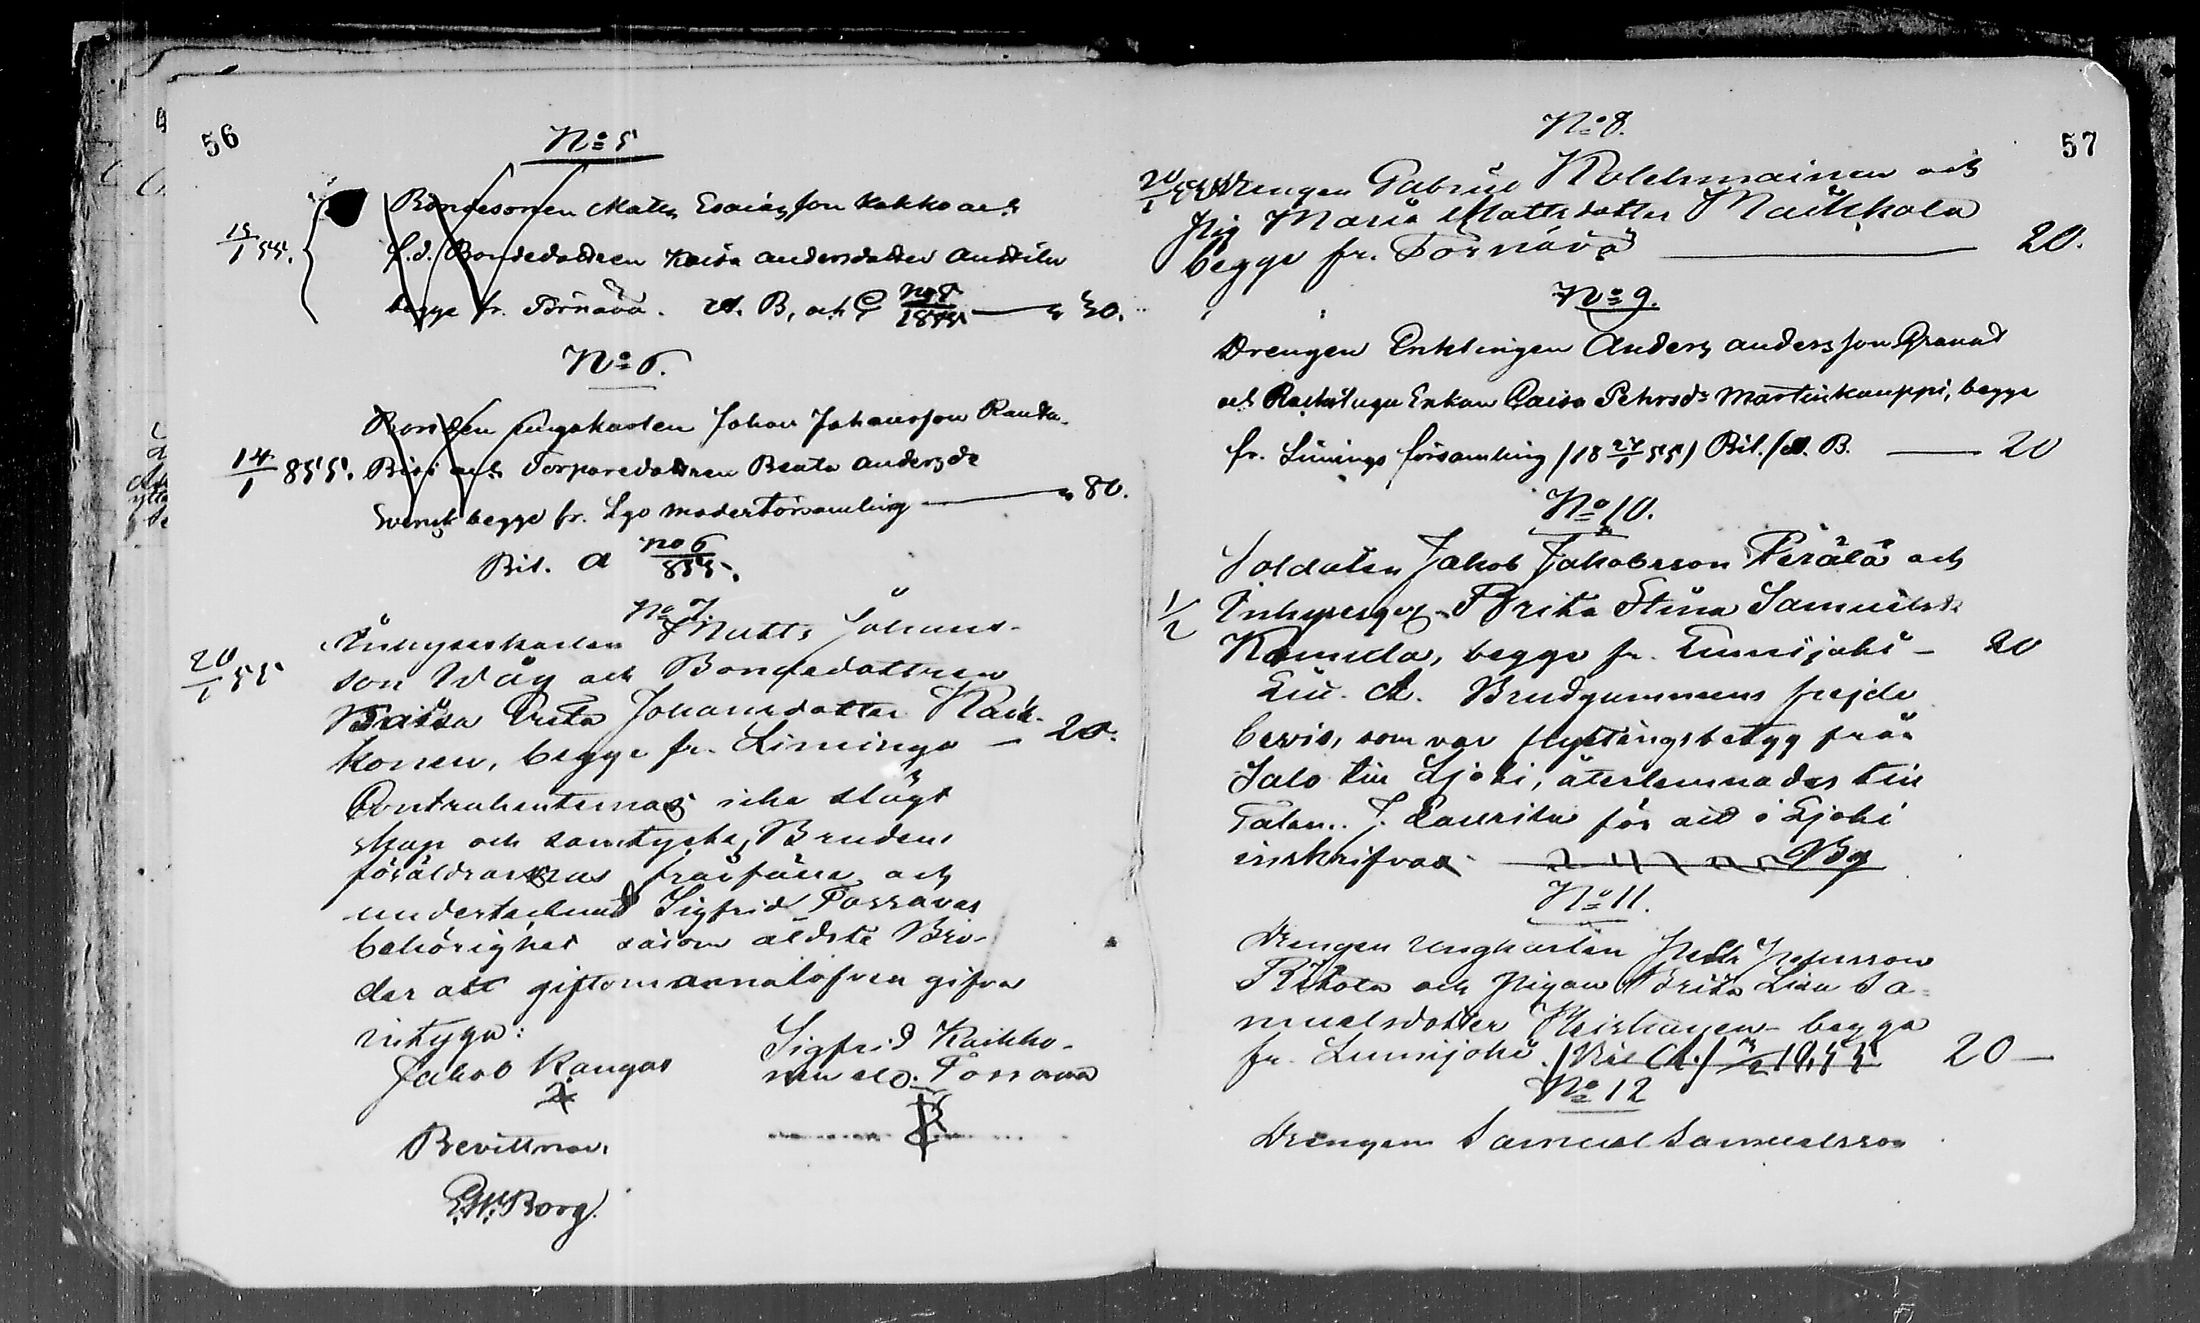 56
No 5
13/1 55. Bondesonen Matts Esaiasson Kakko och
f.d. Bondedottren Kaisa Andersdotter Anttila
begge fr. Törnävä. A. B, och C No 5/1855 — " 30.
No 6.
Bonden Ungakarlen Johan Johansson Ranta-
14/1 855. och Torparedottren Beata Andersdr
begge fr. Lgo moderförsamling — " 80.
Bil. A No 6/855.
No 7.
Inhyseskarlen Matts Johans-
20/1 55 son Wåg och Bondedottren
Brita Johansdotter Kaik-
konen, begge fr. Limingo — 20.
Contrahenternas icke slägt
skap och samtycke, Brudens
föräldrarnas frånfälle och
undertecknad Sigfrid Torravas
behörighet såsom äldste Bro-
der att giftomannalofven gifva
intyga:
Jakob Kangas Sigfrid Kaikko-
nen eld. Torrava
Bevittnar.
E.W. Borg.
57
No 8.
20/1 55 Drengen Gabriel Kolehmainen och
Pig Maria Mattsdotter Maikkola
begge fr. Törnävä — 20.
No 9.
Drengen Enklingen Anders Andersson Granat
och Enkan Caisa Pehrsdr Martinkauppi, begge
fr. Limingo församling (18 27/1 55) Bil. (A. B. — 20
No 10.
Soldaten Jakob Jakobsson Perälä och
1/2 Inhysespig. Brita Stina Samuelsdr
Kamula, begge fr. Lumijoki — 20
Lit. A. Brudgummens frejde
bevis, som var flyttningsbetyg från
Salo till Ljoki, återlemnades till
Talan. J. Laurila för att i Ljoki
inskrifvas. Bg
No 11.
Drengen ungkarlen Petr Jepsson
Pihola och Pigan Brita Lisa Sa-
muelsdotter Keiskanen begge
fr. Lumijoki. (Bil A.) 1855 20 —
No 12
Drengen Samuel Samuelsson